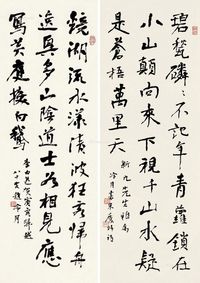 碧甃磷磷不記年青蘿鎖在
小山顛向來下視千山水疑
是蒼梧萬里天
鏡湖流水漾清波狂客歸舟
逸興多山陰道士如相見應
寫黃庭換白鵝
李白送賀賓客歸越